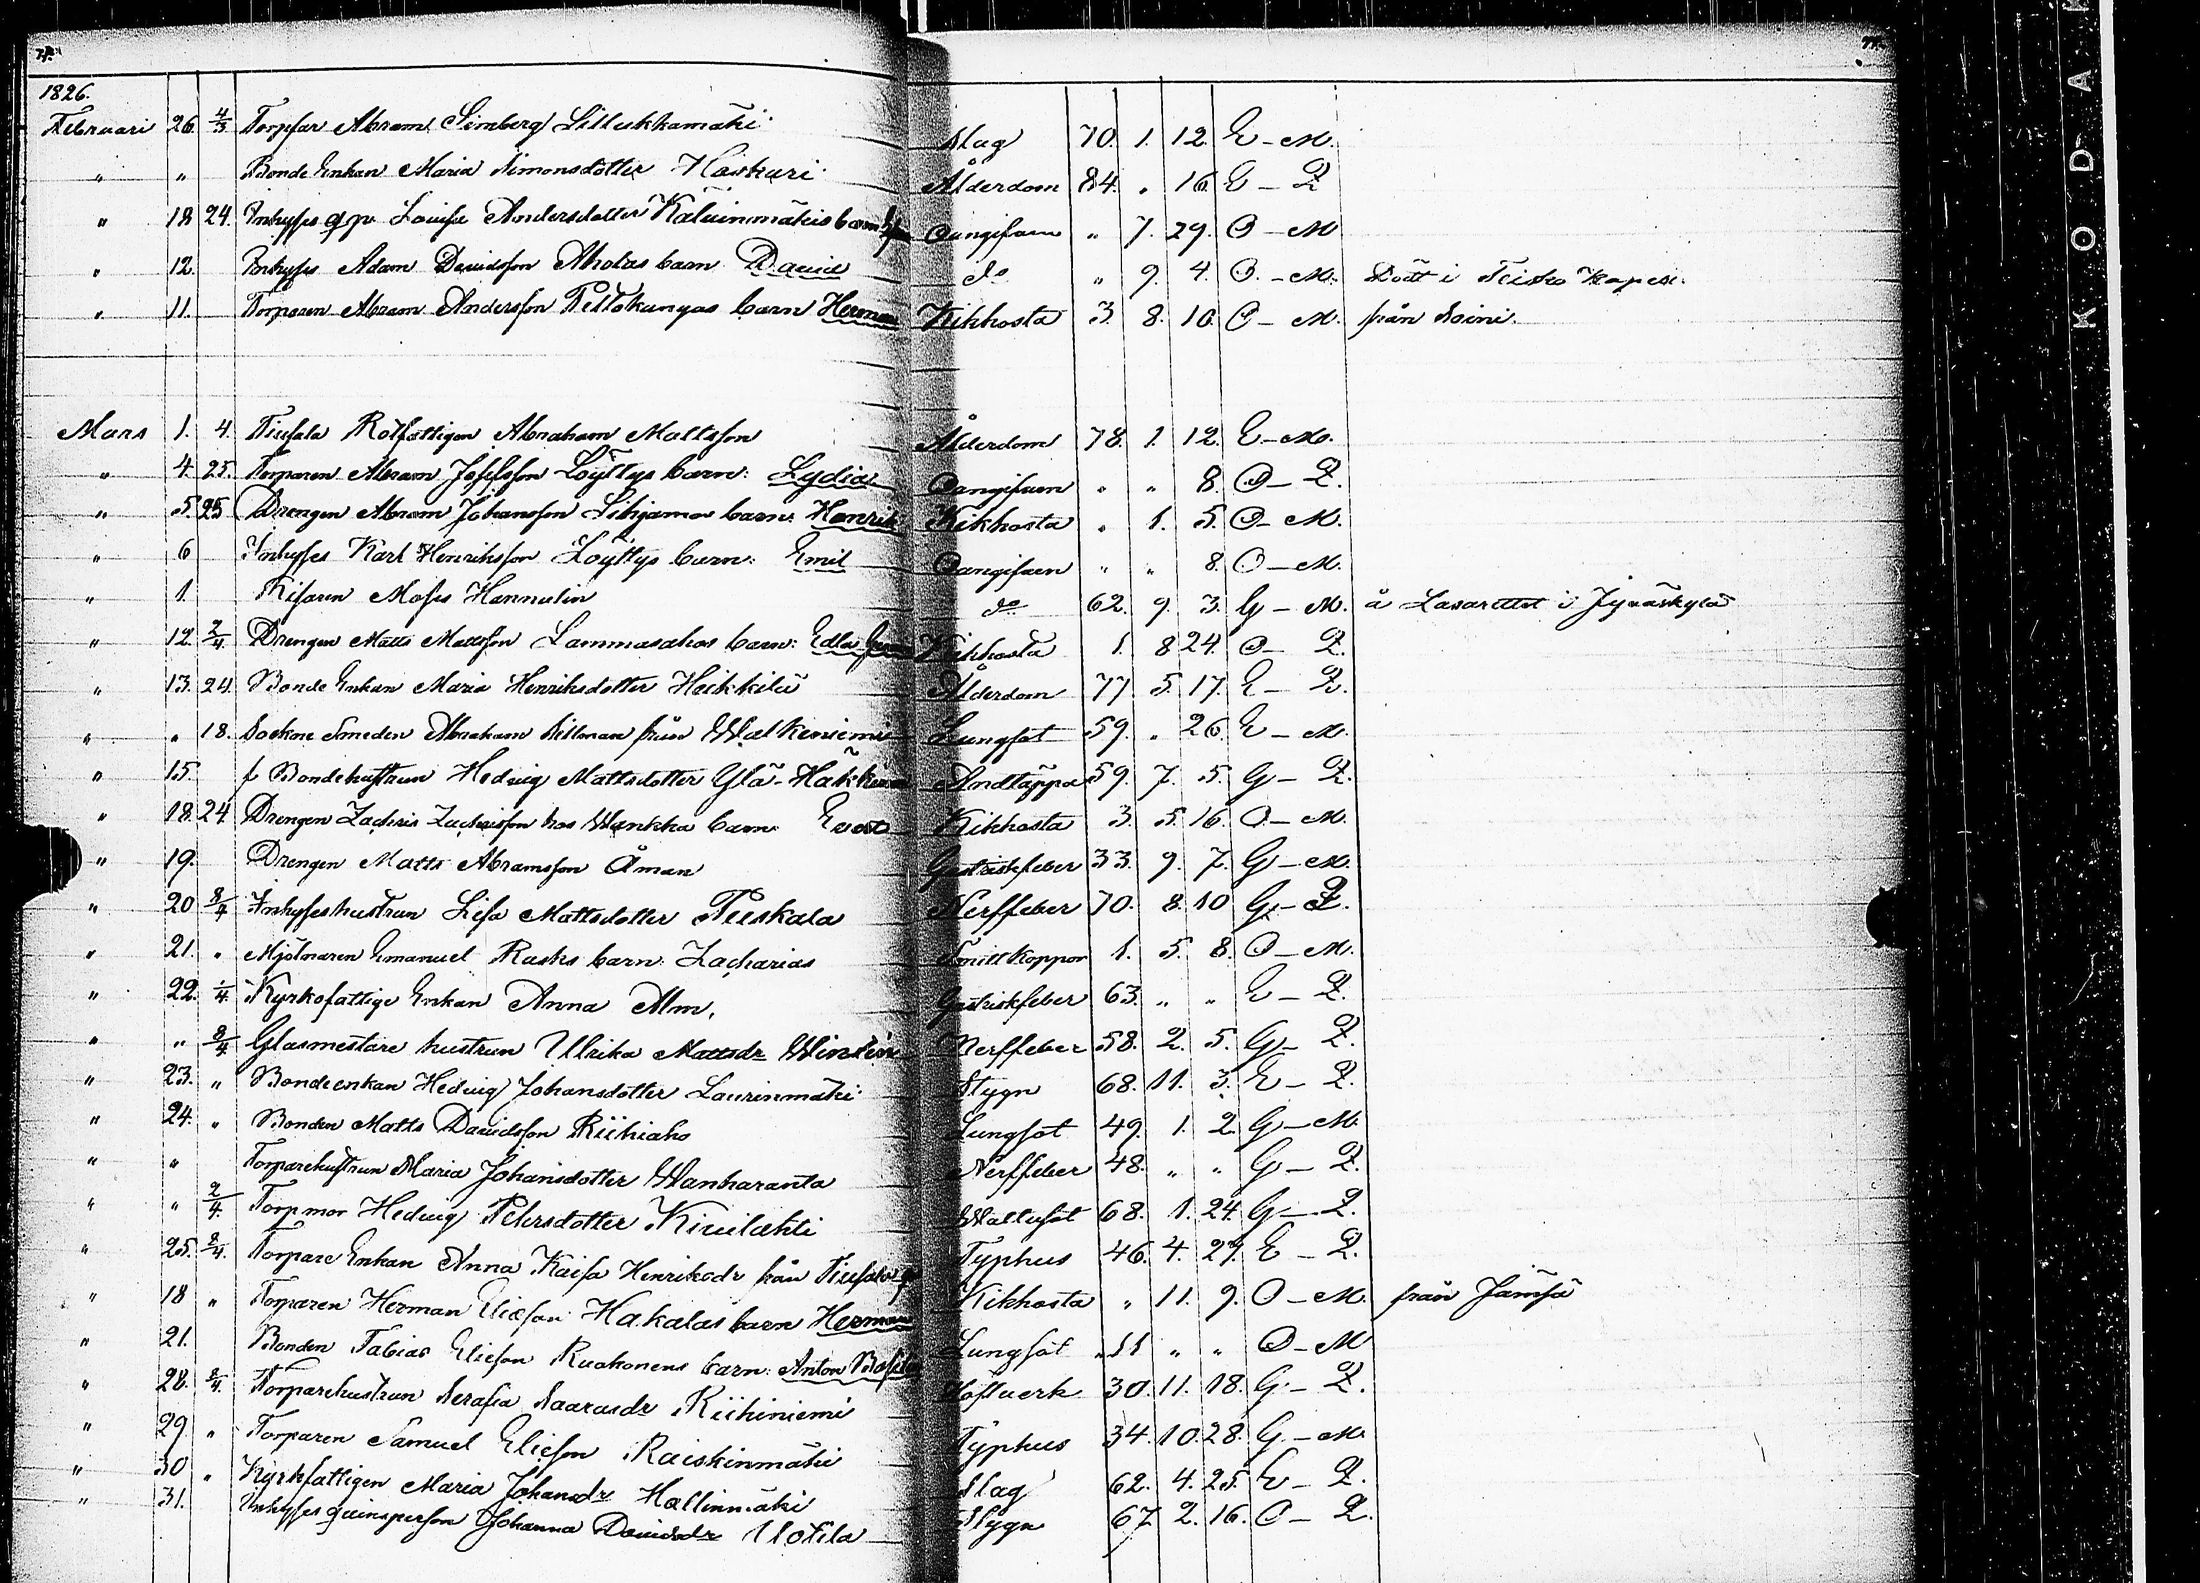 1826.
Februari 26 4/3 Torpfar Abram Simberg Lillukkamäki Slag 70. 1. 12. E - M.
" " Bonde Enkan Maria Simonsdotter Haskari Ålderdom 84. " 16 E - Q
" 18 24. Inhyses qp Lovisa Andersdotter Kaluinmäkis barn Oangifven " 7. 29. O - M
" 12. Inhyses Adam Davidsson Aholas barn David do " 9. 4. O. - M. Död i Teisko Kapell.
" 11. Torparen Abram Andersson Peltokangas barn Herman Kikhosta 3. 8. 10. O - M. från Soini.
Mars 1. 4. Tiusala Rotfattigen Abraham Mattsson Ålderdom 78. 1. 12. E - M.
" 4. 25. Torparen Abram Josefsson Löyttys barn: Lydia Oangifven " " 8. O - Q.
" 5. 25 Drengen Abram Johansson barn: Henrik Kikhosta " 1. 5. O - M.
" 6 Inhyses Karl Henriksson Löyttys barn: Emil Oangifven " " 8. O - M.
" 1. Moses Hannulin do 62. 9. 3. G - M. å Lasarettet i Jyväskylä
" 12. 2/4 Drengen Matts Mattsson Lammasahos barn: Edla Kikhosta 1. 8 24. O - Q.
" 13. 24. Bonde Enkan Maria Henriksdotter Heikkilä Ålderdom 77. 5. 17. E - Q.
" " 18. Sockne Smeden Abraham Hillman från Walkeniemi Lungsot 59. " 26. E - M.
" 15 f Bondehustrun Hedvig Mattsdotter Ylä-Häkkinen Andtäppa 59. 7. 5. G - Q.
" 18. 24. Drengen Zachris Zachrisson hos Wankka barn Evert Kikhosta 3. 5. 16. O - M.
" 19. Drengen Matts Abramsson Åman Gastriskfeber 33. 9. 7. G - M.
" 20 8/4 Inhyseshustrun Lisa Mattsdotter Piiskala Nerffeber 70. 8. 10 G - Q.
" 21. " Mjölnaren Emanuel Rasks barn: Zacharias Smittkoppor 1. 5. 8. O - M.
" 22. 1/4. Kyrkofattige Enkan Anna Alm, Gastriskfeber 63. " " E - Q.
" " 8/4 Glasmestare hustrun Ulrika Mattsdr Winstén Nerffeber 58. 2. 5. G - Q.
" 23. " Bondeenkan Hedvig Johansdotter Laurinmäki Stygn 68. 11. 3. E - Q.
" 24. " Bonden Matts Davidsson Riihiaho Lungsot 49. 1. 2. G - M.
" " Torparehustrun Maria Johansdotter Wanharanta Nerffeber 48. " " G - Q.
" " 2/4. Torpmor Hedvig Petersdotter Kivilahti Wattusot 68. 1. 24. G - Q.
" 25. 8/4. Torpare Enkan Anna Kaisa Henriksdr från Tiusala Typhus 46. 4. 27. E - Q.
" 18 " Torparen Herman Eliesson Hakalas barn Herman Kikhosta " 11. 9. O - M. från Jämsä
" 21. Bonden Tobias Eliesson Ruohonens barn: Anton Lungsot " 11 " " O - M
" 28. 8/4. Torparehustrun Serafia Saarasdr Riihiniemi Höftverk 30. 11. 18. G - Q.
" 29. " Torparen Samuel Eliesson Raiskinmäki Typhus 34. 10. 28. G - M.
" 30 " Kyrkfattigen Maria Johansdr Hallinmäki Slag 62. 4. 25. E - Q.
" 31. Inhyses qvinsperson Johanna Davidsdr Uotila Stygn 67. 2. 16. O - Q.
KODAK